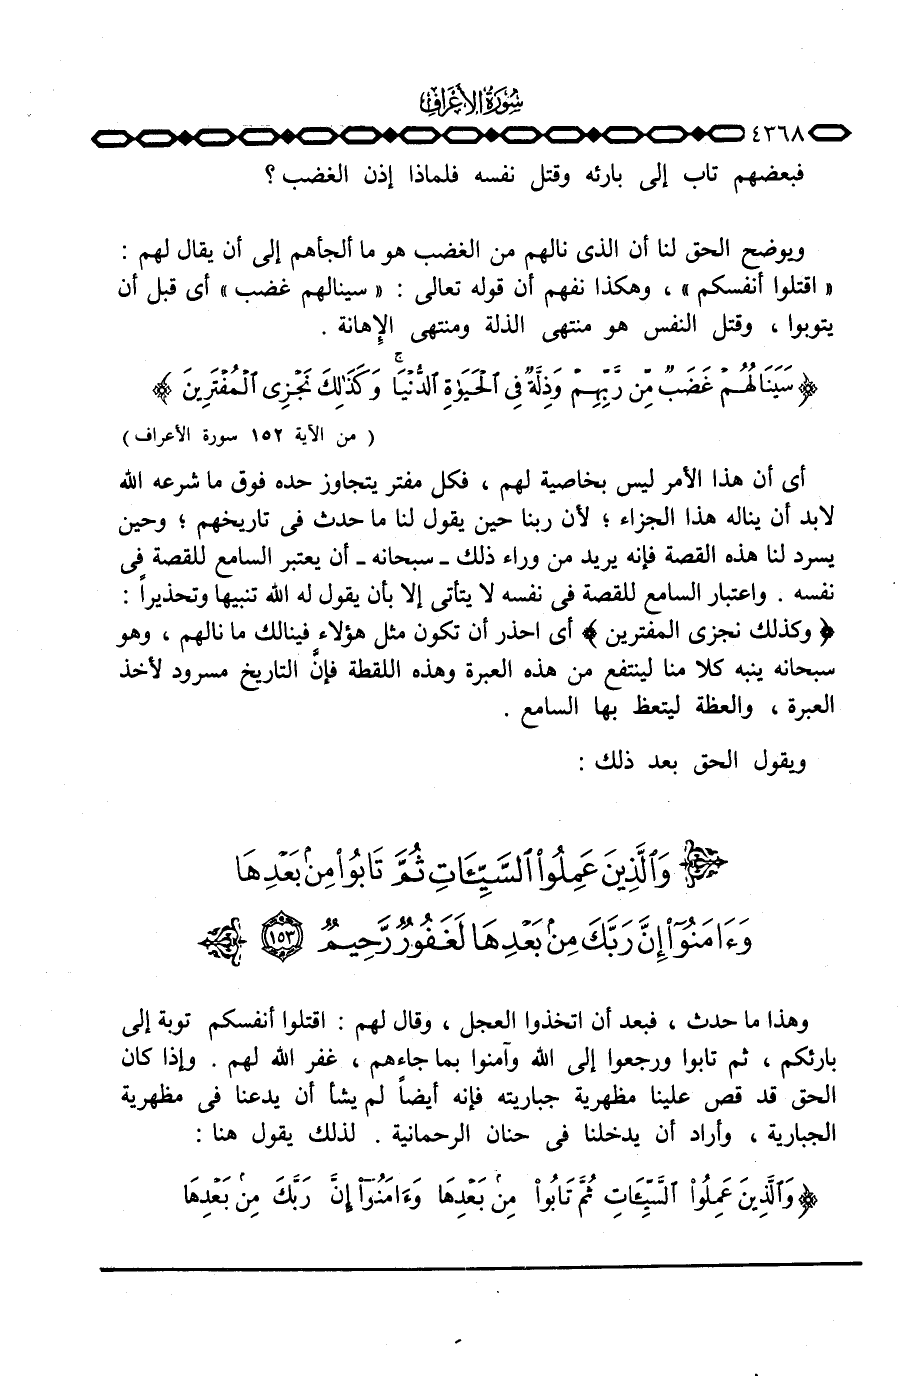 سُورَةُ الأَعْرَافِ
٤٣٦٨
فبعضهم تاب إلى بارئه وقتل نفسه فلماذا إذن الغضب ؟
ويوضح الحق لنا أن الذى نالهم من الغضب هو ما ألجأهم إلى أن يقال لهم :
« اقتلوا أنفسكم » ، وهكذا نفهم أن قوله تعالى : « سينالهم غضب » أى قبل أن
يتوبوا ، وقتل النفس هو منتهى الذلة ومنتهى الإهانة .
﴿ سَيَنَالُهُمْ غَضَبٌ مِّن رَّبِّهِمْ وَذِلَّةٌ فِى ٱلْحَيَوٰةِ ٱلدُّنْيَا ۚ وَكَذَٰلِكَ نَجْزِى ٱلْمُفْتَرِينَ ﴾
( من الآية ١٥٢ سورة الأعراف )
أى أن هذا الأمر ليس بخاصية لهم ، فكل مفتر يتجاوز حده فوق ما شرعه الله
لابد أن يناله هذا الجزاء ؛ لأن ربنا حين يقول لنا ما حدث فى تاريخهم ؛ وحين
يسرد لنا هذه القصة فإنه يريد من وراء ذلك ـ سبحانه ـ أن يعتبر السامع للقصة فى
نفسه . واعتبار السامع للقصة فى نفسه لا يتأتى إلا بأن يقول له الله تنبيها وتحذيراً :
﴿ وكذلك نجزى المفترين ﴾ أى احذر أن تكون مثل هؤلاء فينالك ما نالهم ، وهو
سبحانه ينبه كلا منا لينتفع من هذه العبرة وهذه اللقطة فإنَّ التاريخ مسرود لأخذ
العبرة ، والعظة ليتعظ بها السامع .
ويقول الحق بعد ذلك :
﴿ وَٱلَّذِينَ عَمِلُوا۟ ٱلسَّيِّـَٔاتِ ثُمَّ تَابُوا۟ مِنۢ بَعْدِهَا
وَءَامَنُوٓا۟ إِنَّ رَبَّكَ مِنۢ بَعْدِهَا لَغَفُورٌ رَّحِيمٌ ١٥٣ ﴾
وهذا ما حدث ، فبعد أن اتخذوا العجل ، وقال لهم : اقتلوا أنفسكم توبة إلى
بارئكم ، ثم تابوا ورجعوا إلى الله وآمنوا بما جاءهم ، غفر الله لهم . وإذا كان
الحق قد قص علينا مظهرية جباريته فإنه أيضاً لم يشأ أن يدعنا فى مظهرية
الجبارية ، وأراد أن يدخلنا فى حنان الرحمانية . لذلك يقول هنا :
﴿ وَٱلَّذِينَ عَمِلُوا۟ ٱلسَّيِّـَٔاتِ ثُمَّ تَابُوا۟ مِنۢ بَعْدِهَا وَءَامَنُوٓا۟ إِنَّ رَبَّكَ مِنۢ بَعْدِهَا